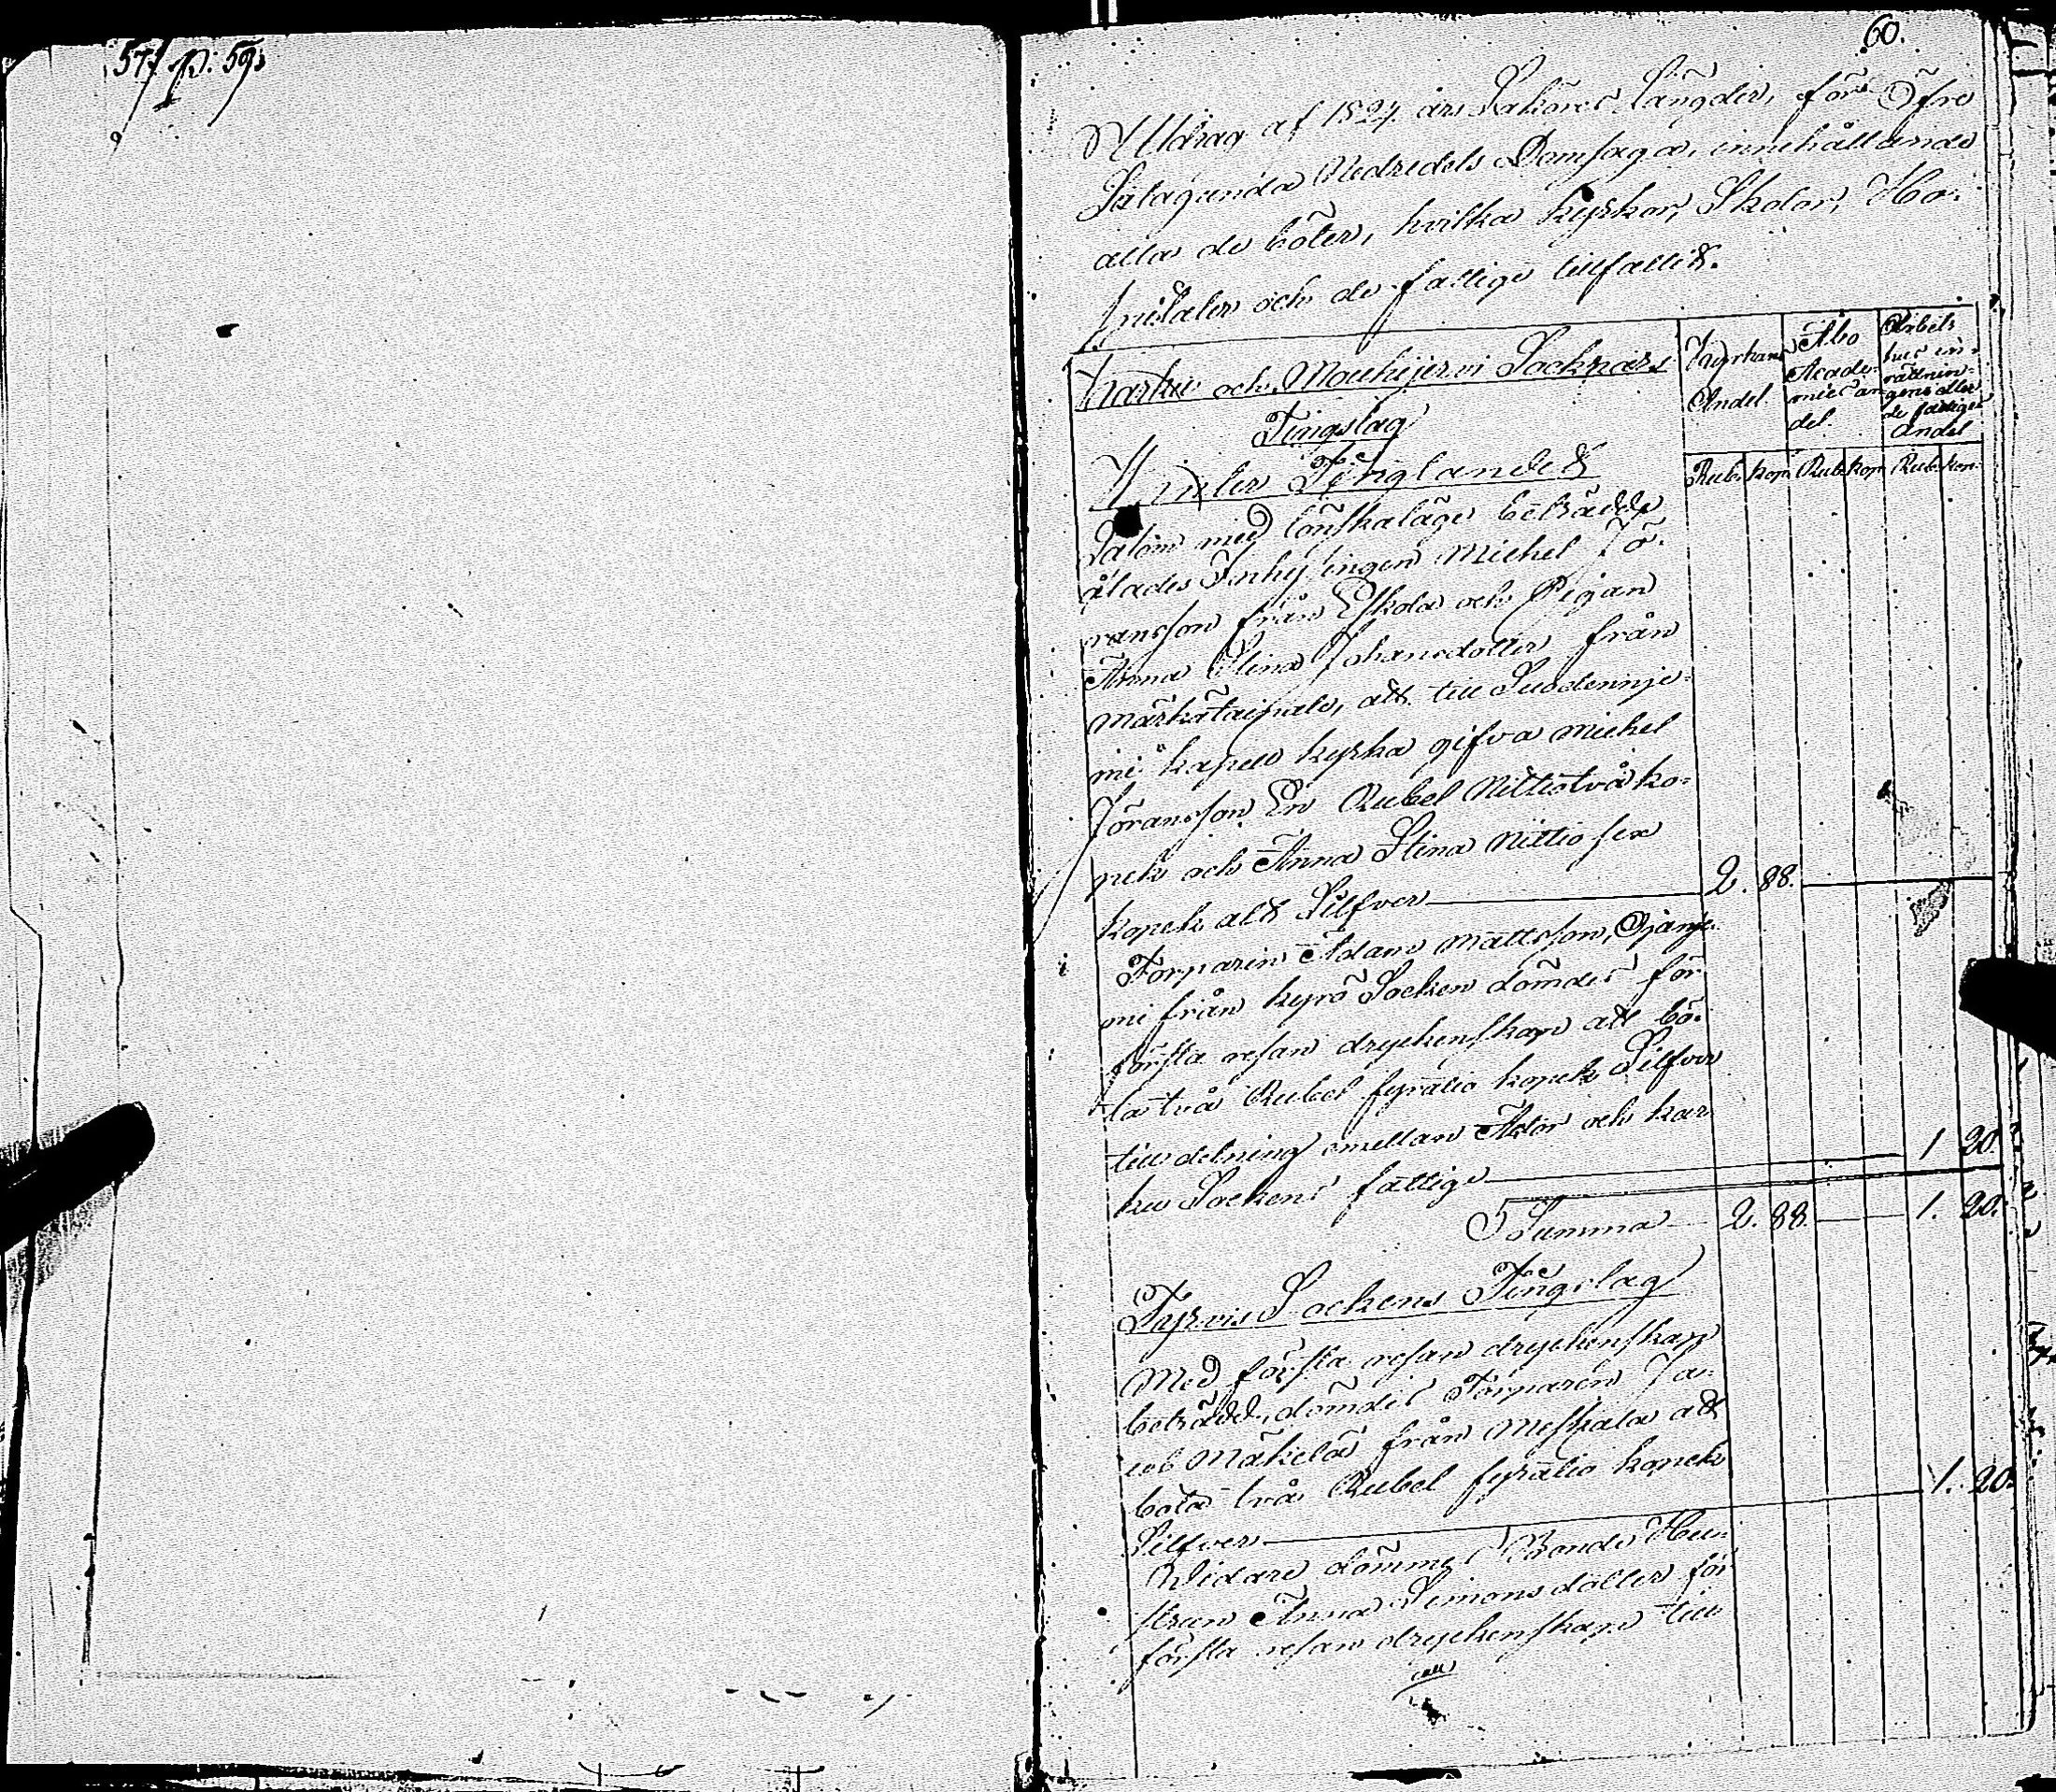 57 p. 59.
60.
Utdrag af 1824 års Saköres Längder, för Öfre
Satagunda Nedredels Domsaga, innehållande
alla de böter, hvilka kyrkor, Skolor, Ho-
spitaler och de fattige tillfallit.
Karku och Mouhijervi Socknars
Tingslag
Kyrkans
Andel.
Åbo
Acade-
mies an-
del.
Arbets
hus in-
rättnin-
gens eller
de fattiges
Andel
Rub. kop. Rub. kop. Rub. kop.
Vinter Tinget
Såsom med lönskaläge beträdde
ålades Inhysingen Michel Jö-
ransson från Eskola och Pigan
Anna Stina Johansdotter från
Märkätaipale, att till Suodennje-
mi kapell kyrka gifva Michel
Jöransson En Rubel Nittiotvå ko-
pek och Anna Stina Nittiosex
kopek allt Silfver 2. 88.
Torparen Adam Mattsson
mi från kyrö Socken dömdes för
första resan dryckenskap att bö-
ta två Rubel fyratio kopek Silfver
till delning emellan Actor och kar-
ku Sockens fattige 1 20.
Summa 2. 88. 1. 20.
Tyrvis Sockens Tingslag
Med första resan dryckenskap
beträdd, dömdes Torparen Ja-
cob Mäkelä från Meskala att
böta två Rubel fyratio kopek
Silfver 1. 20.
Widare dömmes Bonde Hu-
strun Anna Simonsdotter för
första resan dryckenskap till